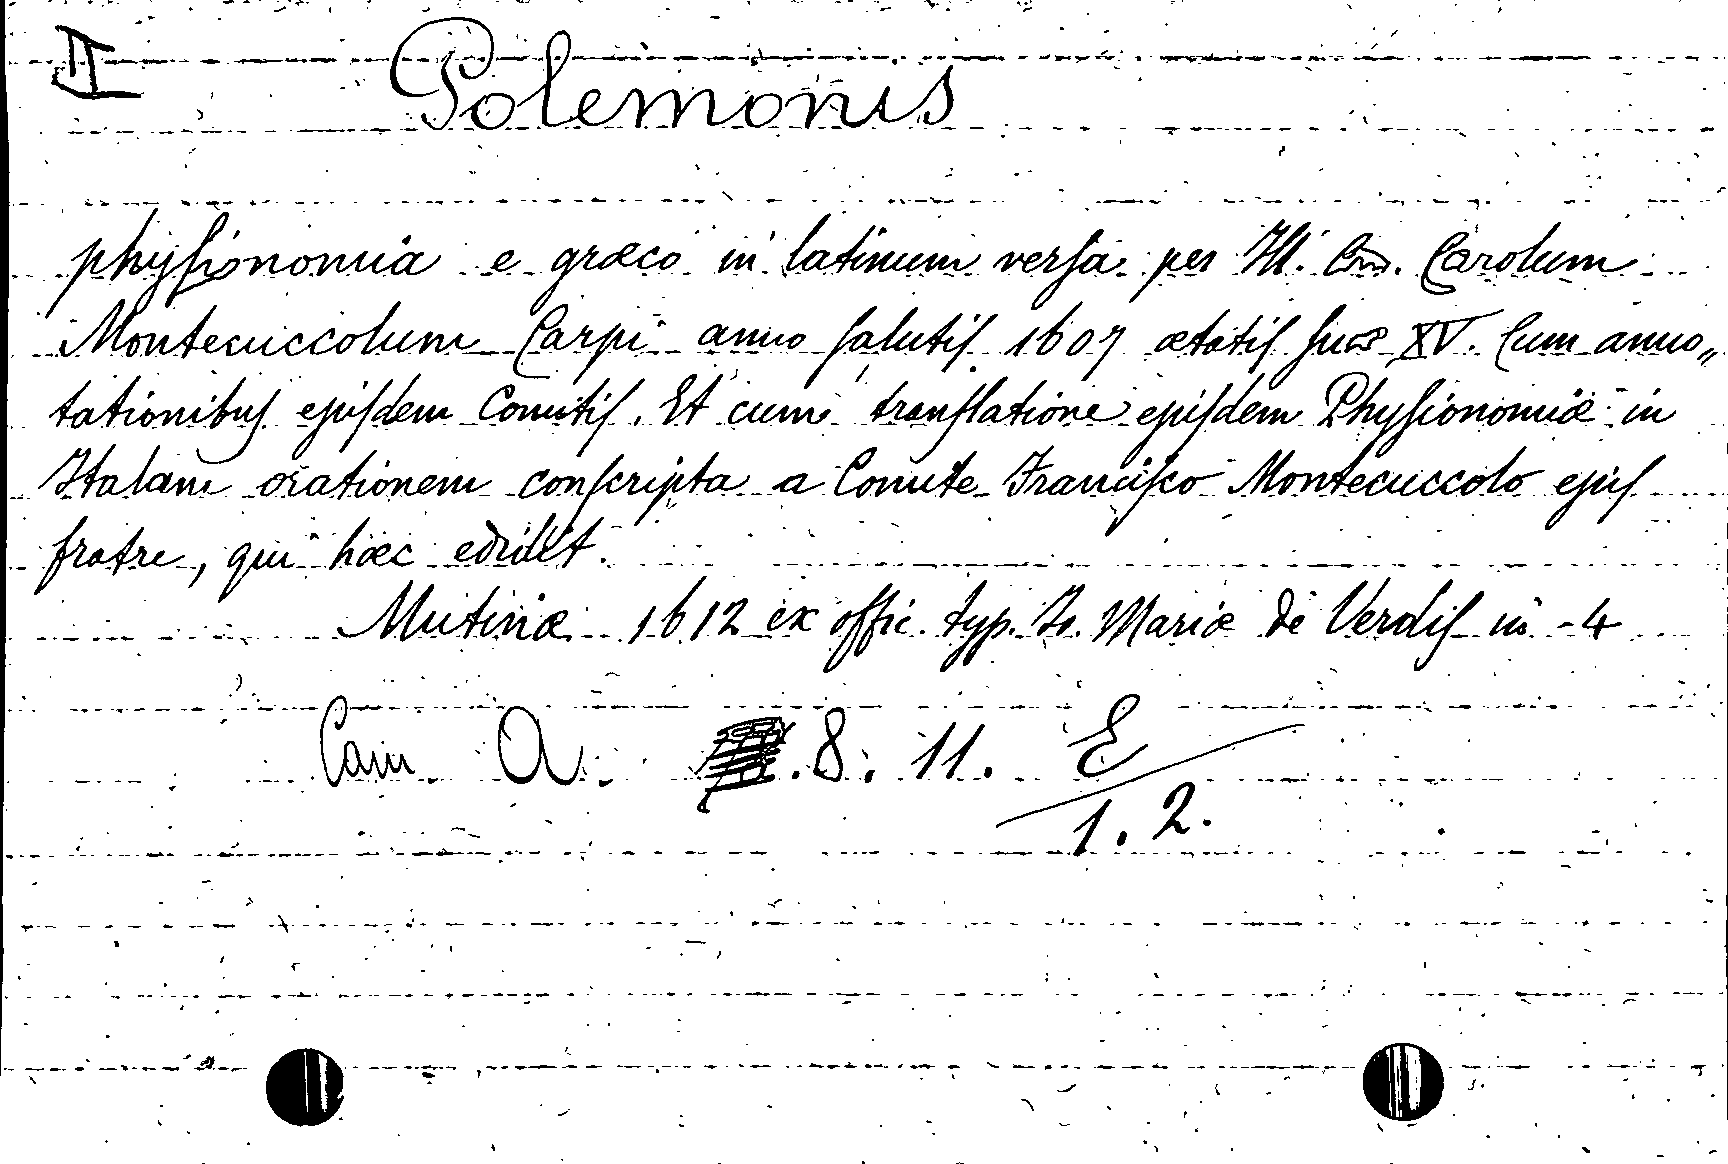 II Polemonis
phyſionomia e græco in latinum verſa per Ill. Com. Carolum
Montecuccolum Carpi anno ſalutiſ 1607 ætatiſ ſuæ XV. Cum anno„
tationibuſ ejuſdem Comitiſ. Et cum tranſlatione ejuſdem Phyſionomiæ in
Italam orationem conſcripta a Comite Franciſco Montecuccolo ejuſ
fratre, qui hæc edidit.
Mutinæ 1612 ex offic. typ. Jo. Mariæ de Verdiſ in -4
Cam A. .8. 11. E
1. 2.